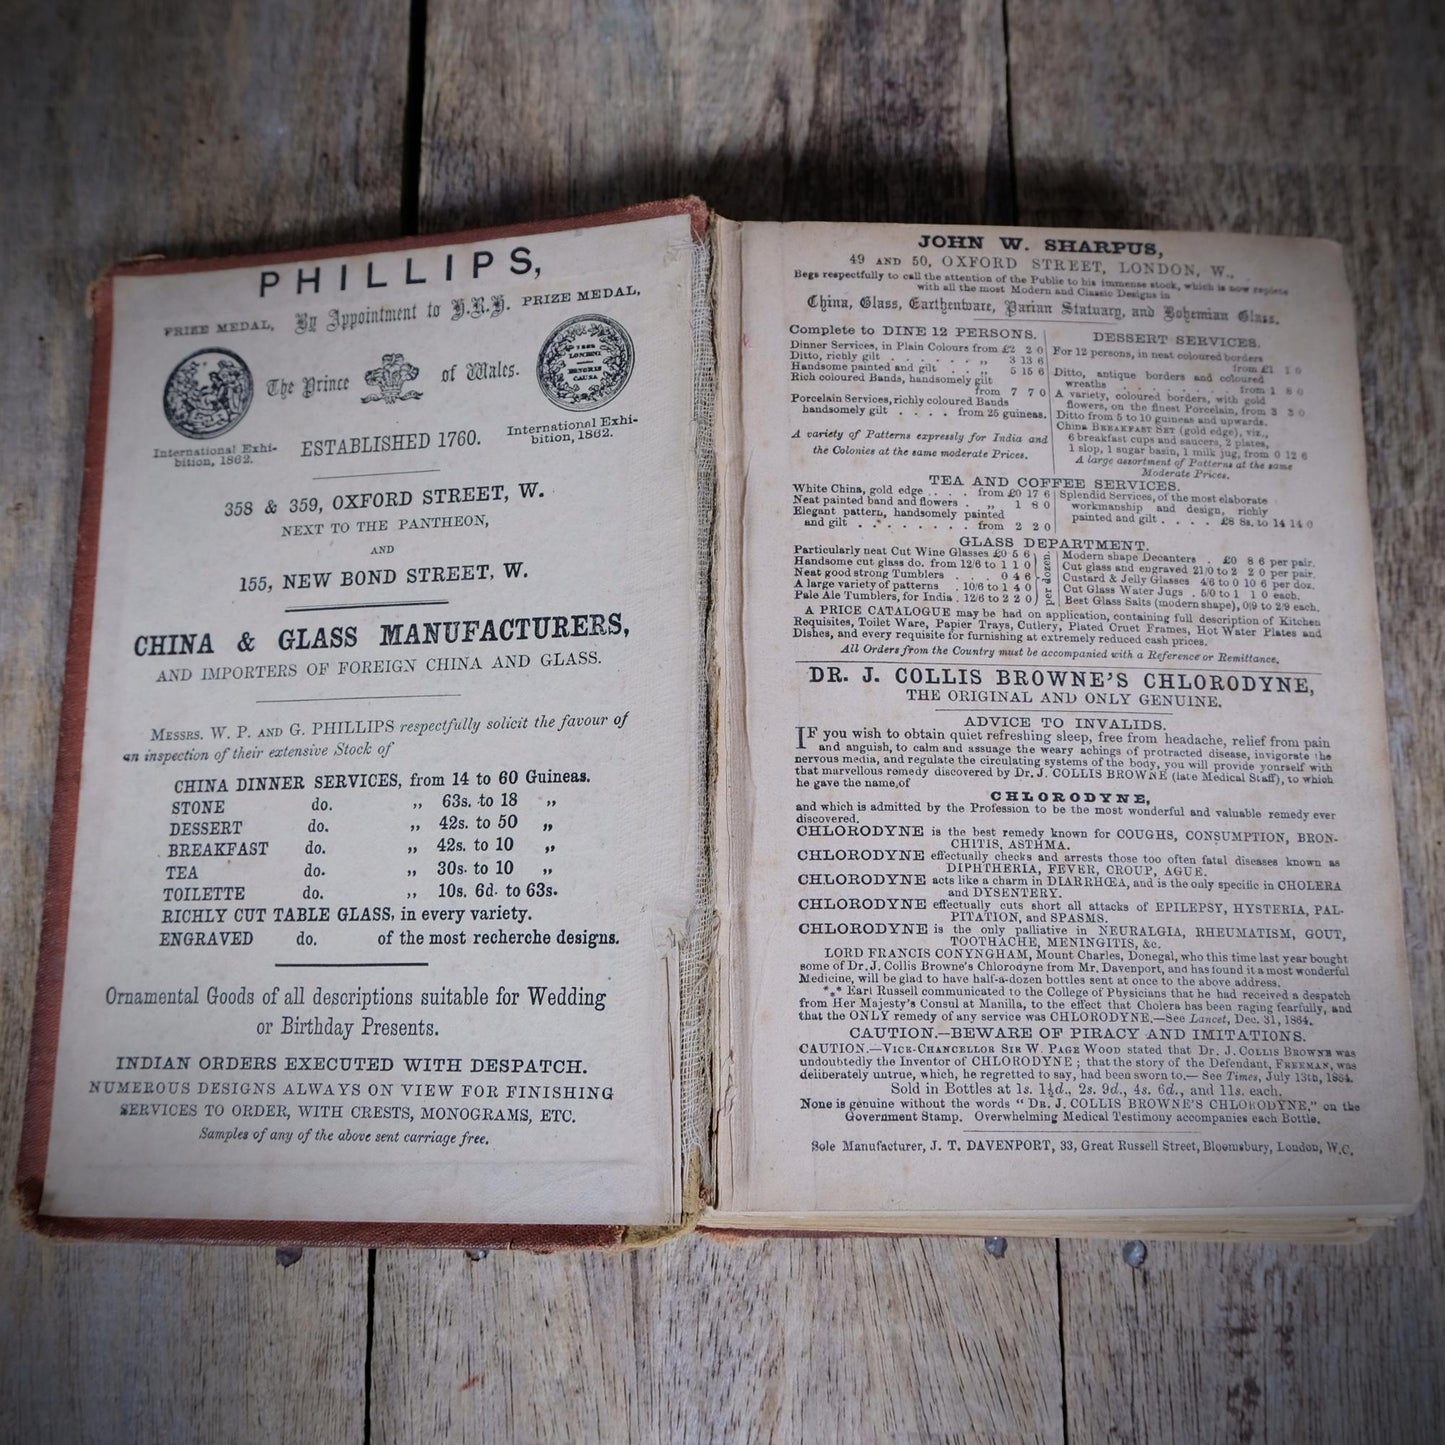 PHILLIPS,
PRIZE MEDAL, By Appointment to H.R.H. PRIZE MEDAL,
The Prince of Wales.
1862
LONDINI
HONORIS
CAUSA
International Exhi-
bition, 1862.
ESTABLISHED 1760.
International Exhi-
bition, 1862.
358 & 359, OXFORD STREET, W.
NEXT TO THE PANTHEON,
AND
155, NEW BOND STREET, W.
CHINA & GLASS MANUFACTURERS,
AND IMPORTERS OF FOREIGN CHINA AND GLASS.
MESSRS. W. P. AND G. PHILLIPS respectfully solicit the favour of
an inspection of their extensive Stock of
CHINA DINNER SERVICES, from 14 to 60 Guineas.
STONE do. „ 63s. to 18 „
DESSERT do. „ 42s. to 50 „
BREAKFAST do. „ 42s. to 10 „
TEA do. „ 30s. to 10 „
TOILETTE do. „ 10s. 6d. to 63s.
RICHLY CUT TABLE GLASS, in every variety.
ENGRAVED do. of the most recherche designs.
Ornamental Goods of all descriptions suitable for Wedding
or Birthday Presents.
INDIAN ORDERS EXECUTED WITH DESPATCH.
NUMEROUS DESIGNS ALWAYS ON VIEW FOR FINISHING
SERVICES TO ORDER, WITH CRESTS, MONOGRAMS, ETC.
Samples of any of the above sent carriage free.
JOHN W. SHARPUS,
49 AND 50, OXFORD STREET, LONDON, W.,
Begs respectfully to call the attention of the Public to his immense stock, which is now replete
with all the most Modern and Classic Designs in
China, Glass, Earthenware, Parian Statuary, and Bohemian Glass.
Complete to DINE 12 PERSONS.
Dinner Services, in Plain Colours from £2 2 0
Ditto, richly gilt . . . . . . „ 3 13 6
Handsome painted and gilt . . „ 5 15 6
Rich coloured Bands, handsomely gilt
from 7 7 0
Porcelain Services, richly coloured Bands
handsomely gilt . . . . from 25 guineas.
A variety of Patterns expressly for India and
the Colonies at the same moderate Prices.
DESSERT SERVICES.
For 12 persons, in neat coloured borders
from £1 1 0
Ditto, antique borders and coloured
wreaths . . . . . . from 1 8 0
A variety, coloured borders, with gold
flowers, on the finest Porcelain, from 3 3 0
Ditto from 5 to 10 guineas and upwards.
China BREAKFAST SET (gold edge), viz.,
6 breakfast cups and saucers, 2 plates,
1 slop, 1 sugar basin, 1 milk jug, from 0 12 6
A large assortment of Patterns at the same
Moderate Prices.
TEA AND COFFEE SERVICES.
White China, gold edge . . . from £0 17 6
Neat painted band and flowers . „ 1 8 0
Elegant pattern, handsomely painted
and gilt . . . . . . . . from 2 2 0
Splendid Services, of the most elaborate
workmanship and design, richly
painted and gilt . . . . £8 8s. to 14 14 0
GLASS DEPARTMENT.
Particularly neat Cut Wine Glasses £0 5 6
Handsome cut glass do. from 12/6 to 1 1 0
Neat good strong Tumblers . . . 0 4 6
A large variety of patterns . 10/6 to 1 4 0
Pale Ale Tumblers, for India . 12/6 to 2 2 0
per dozen
Modern shape Decanters . £0 8 6 per pair.
Cut glass and engraved 21/0 to 2 2 0 per pair.
Custard & Jelly Glasses 4/6 to 0 10 6 per doz.
Cut Glass Water Jugs . 5/0 to 1 1 0 each.
Best Glass Salts (modern shape), 0/9 to 2/9 each.
A PRICE CATALOGUE may be had on application, containing full description of Kitchen
Requisites, Toilet Ware, Papier Trays, Cutlery, Plated Cruet Frames, Hot Water Plates and
Dishes, and every requisite for furnishing at extremely reduced cash prices.
All Orders from the Country must be accompanied with a Reference or Remittance.
DR. J. COLLIS BROWNE'S CHLORODYNE,
THE ORIGINAL AND ONLY GENUINE.
ADVICE TO INVALIDS.
IF you wish to obtain quiet refreshing sleep, free from headache, relief from pain
and anguish, to calm and assuage the weary achings of protracted disease, invigorate the
nervous media, and regulate the circulating systems of the body, you will provide yourself with
that marvellous remedy discovered by Dr. J. COLLIS BROWNE (late Medical Staff), to which
he gave the name of
CHLORODYNE,
and which is admitted by the Profession to be the most wonderful and valuable remedy ever
discovered.
CHLORODYNE is the best remedy known for COUGHS, CONSUMPTION, BRON-
CHITIS, ASTHMA.
CHLORODYNE effectually checks and arrests those too often fatal diseases known as
DIPHTHERIA, FEVER, CROUP, AGUE.
CHLORODYNE acts like a charm in DIARRHŒA, and is the only specific in CHOLERA
and DYSENTERY.
CHLORODYNE effectually cuts short all attacks of EPILEPSY, HYSTERIA, PAL-
PITATION, and SPASMS.
CHLORODYNE is the only palliative in NEURALGIA, RHEUMATISM, GOUT,
TOOTHACHE, MENINGITIS, &c.
LORD FRANCIS CONYNGHAM, Mount Charles, Donegal, who this time last year bought
some of Dr. J. Collis Browne's Chlorodyne from Mr. Davenport, and has found it a most wonderful
Medicine, will be glad to have half-a-dozen bottles sent at once to the above address.
*** Earl Russell communicated to the College of Physicians that he had received a despatch
from Her Majesty's Consul at Manilla, to the effect that Cholera has been raging fearfully, and
that the ONLY remedy of any service was CHLORODYNE.—See Lancet, Dec. 31, 1864.
CAUTION.—BEWARE OF PIRACY AND IMITATIONS.
CAUTION.—VICE-CHANCELLOR SIR W. PAGE WOOD stated that DR. J. COLLIS BROWNE was
undoubtedly the Inventor of CHLORODYNE; that the story of the Defendant, FREEMAN, was
deliberately untrue, which, he regretted to say, had been sworn to.—See Times, July 13th, 1864.
Sold in Bottles at 1s. 1½d., 2s. 9d., 4s. 6d., and 11s. each.
None is genuine without the words "DR. J. COLLIS BROWNE'S CHLORODYNE," on the
Government Stamp. Overwhelming Medical Testimony accompanies each Bottle.
Sole Manufacturer, J. T. DAVENPORT, 33, Great Russell Street, Bloomsbury, London, W.C.